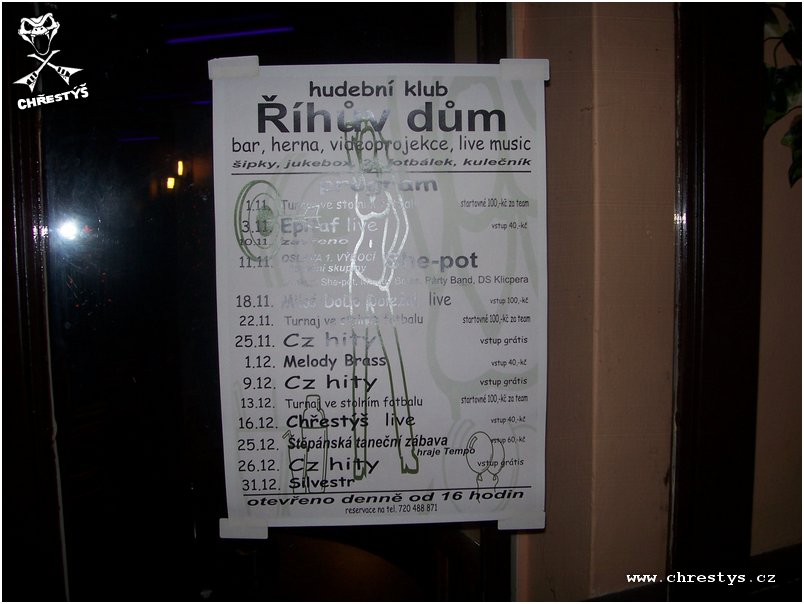 CHŘESTÝŠ
hudební klub
Říhův dům
bar, herna, videoprojekce, live music
šipky, jukebox, fotbálek, kulečník
program
1.11. Turnaj ve stolním fotbalu startovné 100,-kč za team
3.11. Epitaf live vstup 40,-kč
10.11. zavřeno
11.11. OSLAVA 1. VÝROČÍ She-pot
skupiny
She-pot, Brass, Party Band, DS Klicpera
18.11. Miloš Dodo Doležal live vstup 100,-kč
22.11. Turnaj ve stolním fotbalu startovné 100,-kč za team
25.11. Cz hity vstup grátis
1.12. Melody Brass vstup 40,-kč
9.12. Cz hity vstup grátis
13.12. Turnaj ve stolním fotbalu startovné 100,-kč za team
16.12. Chřestýš live vstup 40,-kč
25.12. Štěpánská taneční zábava vstup 60,-kč
hraje Tempo
26.12. Cz hity vstup grátis
31.12. Silvestr
otevřeno denně od 16 hodin
reservace na tel. 720 488 871
www.chrestys.cz